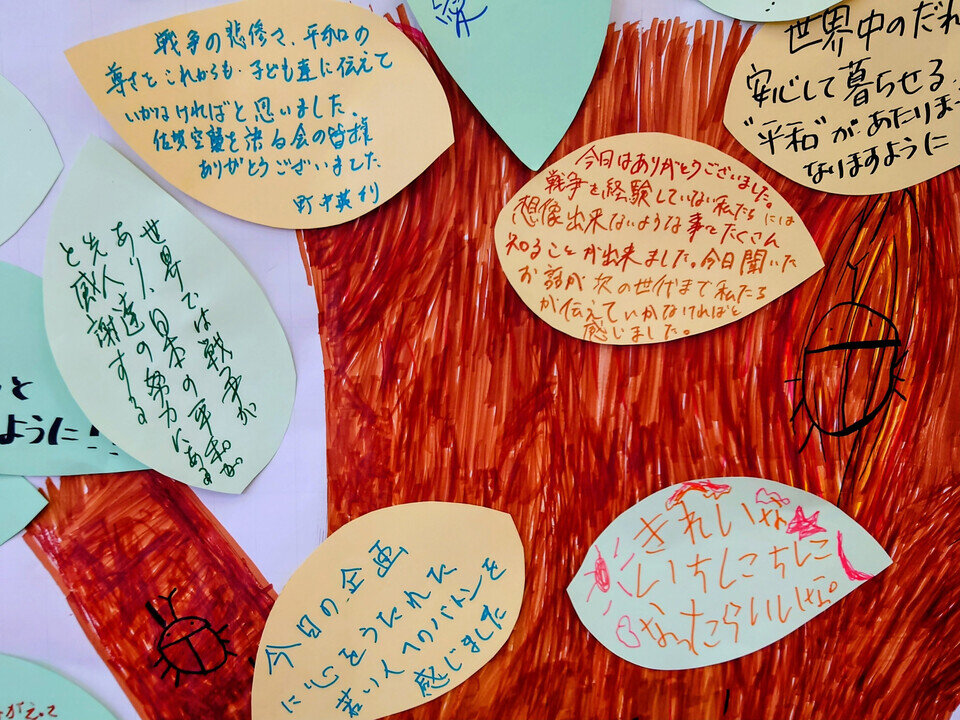 戦争の悲惨さ、平和の
尊さをこれからも、子ども達に伝えて
いかなければと思いました。
佐賀空襲を語る会の皆様
ありがとうございました
野中英利
世界中のだれ
安心して暮らせる
"平和"が、あたりまえ
なりますように
今日はありがとうございました。
戦争を経験していない私たちには
想像出来ないような事をたくさん
知ることが出来ました。今日聞いた
お話が次の世代まで私たち
が伝えていかなければと
感じました。
世界では戦争が
あり、日本の平和が
先人達の努力にある
と感謝する
と
ように!
今日の企画
に心をうたれた
若い人へのバトンを
感じました
きれいな
いちにちに
なったらいいな。